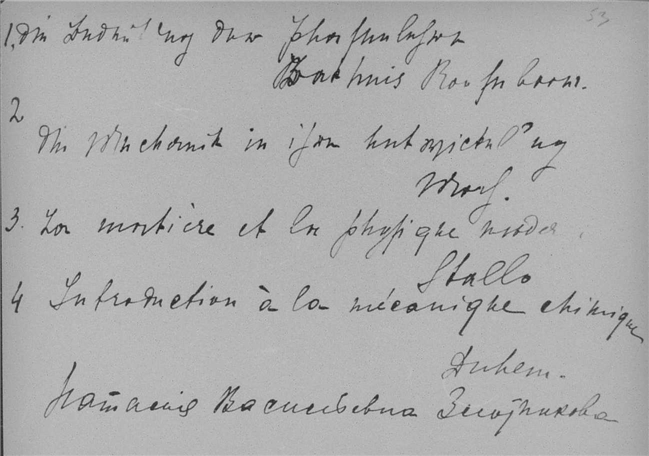 1. Die Bedeutung der Phasenlehre
Bakhuis Roozeboom.
2
Die Mechanik in ihrer Entwickelung
Mach.
3. La matière et la physique moder.
Stallo
4 Introduction à la mécanique chimique
Duhem.
Наталия Васильевна